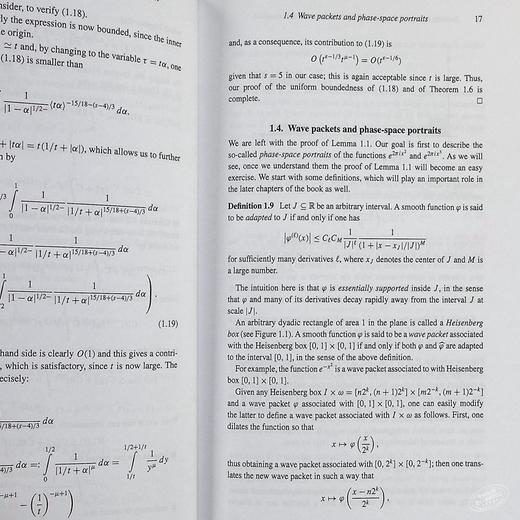 nsider, to verify (1.18).
ly the expression is now bounded, since the inner
e origin.
≃ t and, by changing to the variable τ = tα, one
(1.18) is smaller than
1/|1 − α|^{1/2−} ⟨tα⟩^{−15/18+(s−4)/3} dα.
+ |tα| = t(1/t + |α|), which allows us to further
n by
∫_0^1 1/|1 − α|^{1/2−} 1/|1/t + α|^{15/18+(s−4)/3} dα
1/|1/t + α|^{15/18+(s−4)/3} dα
1/|1 − α|^{1/2−} 1/|1/t + α|^{15/18+(s−4)/3} dα).
(1.19)
hand side is clearly O(1) and this gives a contri-
, which is satisfactory, since t is now large. The
ecisely:
dα =: ∫_0^{1/2} 1/|1/t + α|^μ dα = ∫_{1/t}^{1/2+1/t} 1/y^μ dy
−μ+1 − (1/t)^{−μ+1})
1.4 Wave packets and phase-space portraits 17
and, as a consequence, its contribution to (1.19) is
O(t^{s−1/3}t^{μ−1}) = O(t^{s−1/6})
given that s = 5 in our case; this is again acceptable since t is large. Thus,
our proof of the uniform boundedness of (1.18) and of Theorem 1.6 is
complete. □
1.4. Wave packets and phase-space portraits
We are left with the proof of Lemma 1.1. Our goal is first to describe the
so-called phase-space portraits of the functions e^{2πix²} and e^{2πix³}. As we will
see, once we understand them the proof of Lemma 1.1 will become an easy
exercise. We start with some definitions, which will play an important role in
the later chapters of the book as well.
Definition 1.9 Let J ⊆ ℝ be an arbitrary interval. A smooth function φ is said
to be adapted to J if and only if one has
|φ^{(ℓ)}(x)| ≤ C_ℓ C_M 1/|J|^ℓ 1/(1 + |x − x_J|/|J|)^M
for sufficiently many derivatives ℓ, where x_J denotes the center of J and M is
a large number.
The intuition here is that φ is essentially supported inside J, in the sense
that φ and many of its derivatives decay rapidly away from the interval J at
scale |J|.
An arbitrary dyadic rectangle of area 1 in the plane is called a Heisenberg
box (see Figure 1.1). A smooth function φ is said to be a wave packet associated
with the Heisenberg box [0, 1] × [0, 1] if and only if both φ and φ̂ are adapted
to the interval [0, 1], in the sense of the above definition.
For example, the function e^{−x²} is a wave packet associated to with Heisenberg
box [0, 1] × [0, 1].
Given any Heisenberg box I × ω = [n2^k, (n + 1)2^k] × [m2^{−k}, (m + 1)2^{−k}]
and a wave packet φ associated with [0, 1] × [0, 1], one can easily modify
the latter to define a wave packet associated with I × ω as follows. First, one
dilates the function so that
x ↦ φ(x/2^k),
thus obtaining a wave packet associated with [0, 2^k] × [0, 2^{−k}]; then one trans-
lates the new wave packet in such a way that
x ↦ φ((x − n2^k)/2^k),